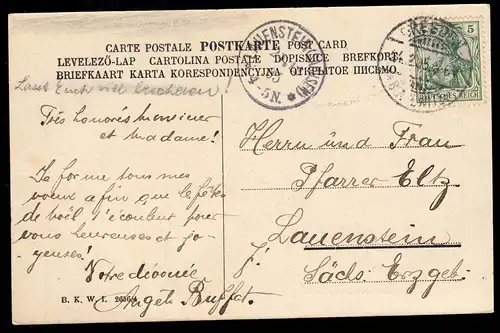 CARTE POSTALE POSTKARTE POST CARD
LEVELEZŐ-LAP CARTOLINA POSTALE DOPISNICE BREFKORT
BRIEFKAART KARTA KORESPONDENCYJNA ОТКРЫТОЕ ПИСЬМО.
LAUENSTEIN (SACHSEN)
4-5N.
DRESDEN
5
DEUTSCHES REICH
Lasst Euch viel bescheren
Très honorés monsieur
et madame!
Je forme tous mes
voeux afin que les fêtes
de noël s'écoulent pour
vous heureuses et jo-
yeuses!
Votre dévouée
Angèle
B. K. W. I. 2636/4
Herrn und Frau
Pfarrer Eltz
Lauenstein
i/
Sächs. Erzgeb.